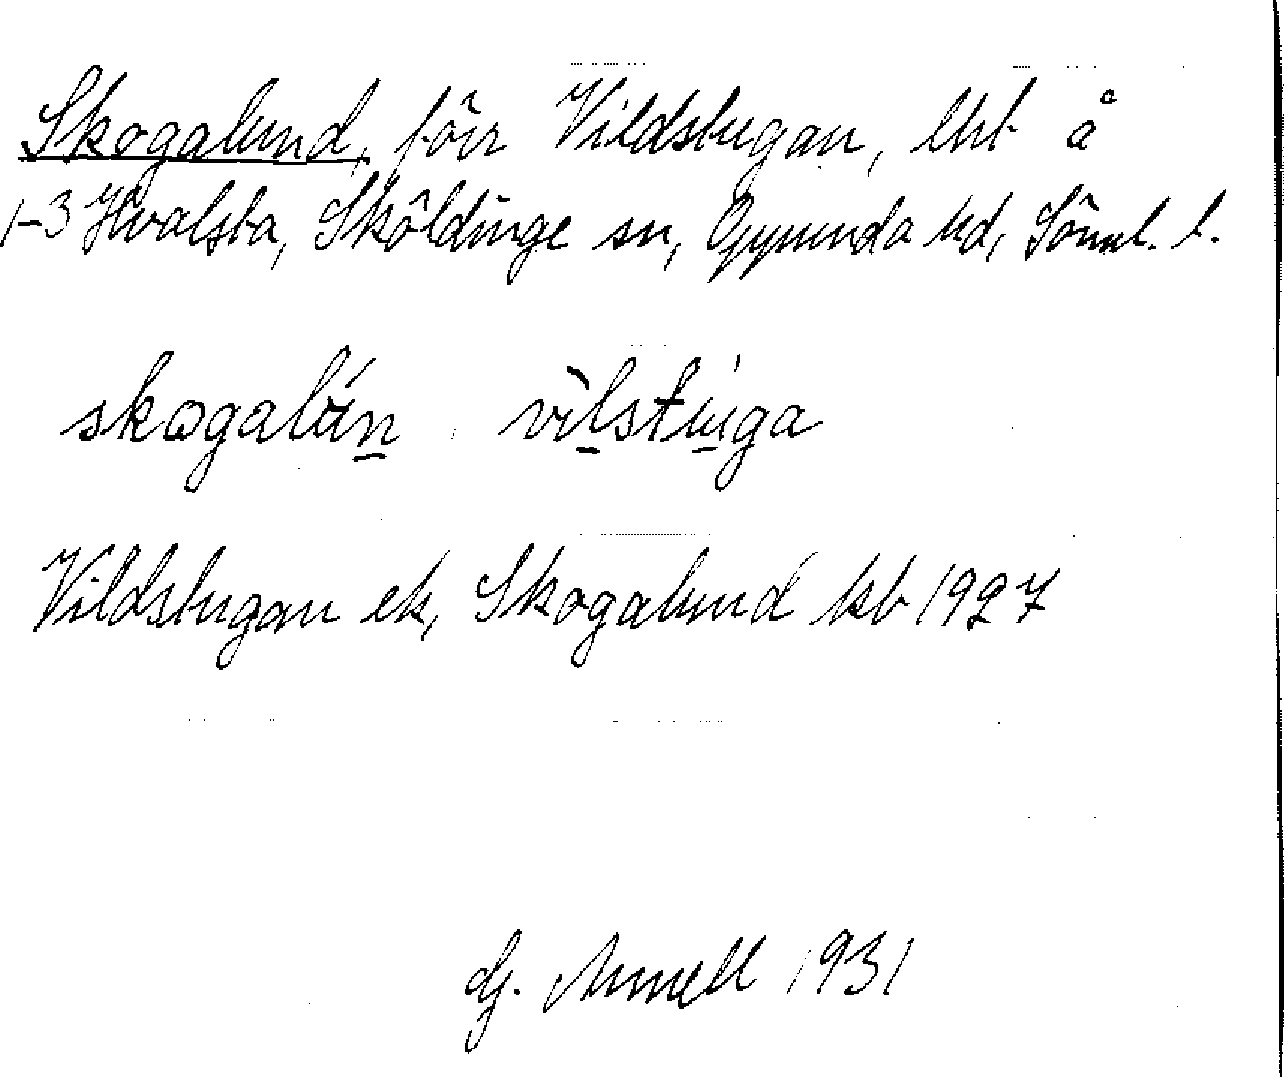 Skogalund, förr Vildstugan, lht å
1-3 Hvalsta, Sköldinge sn, Oppunda hd, Söml. l.
skogalún vìlstúga
Vildstugan ek, Skogalund kb 1927
G. Annell 1931